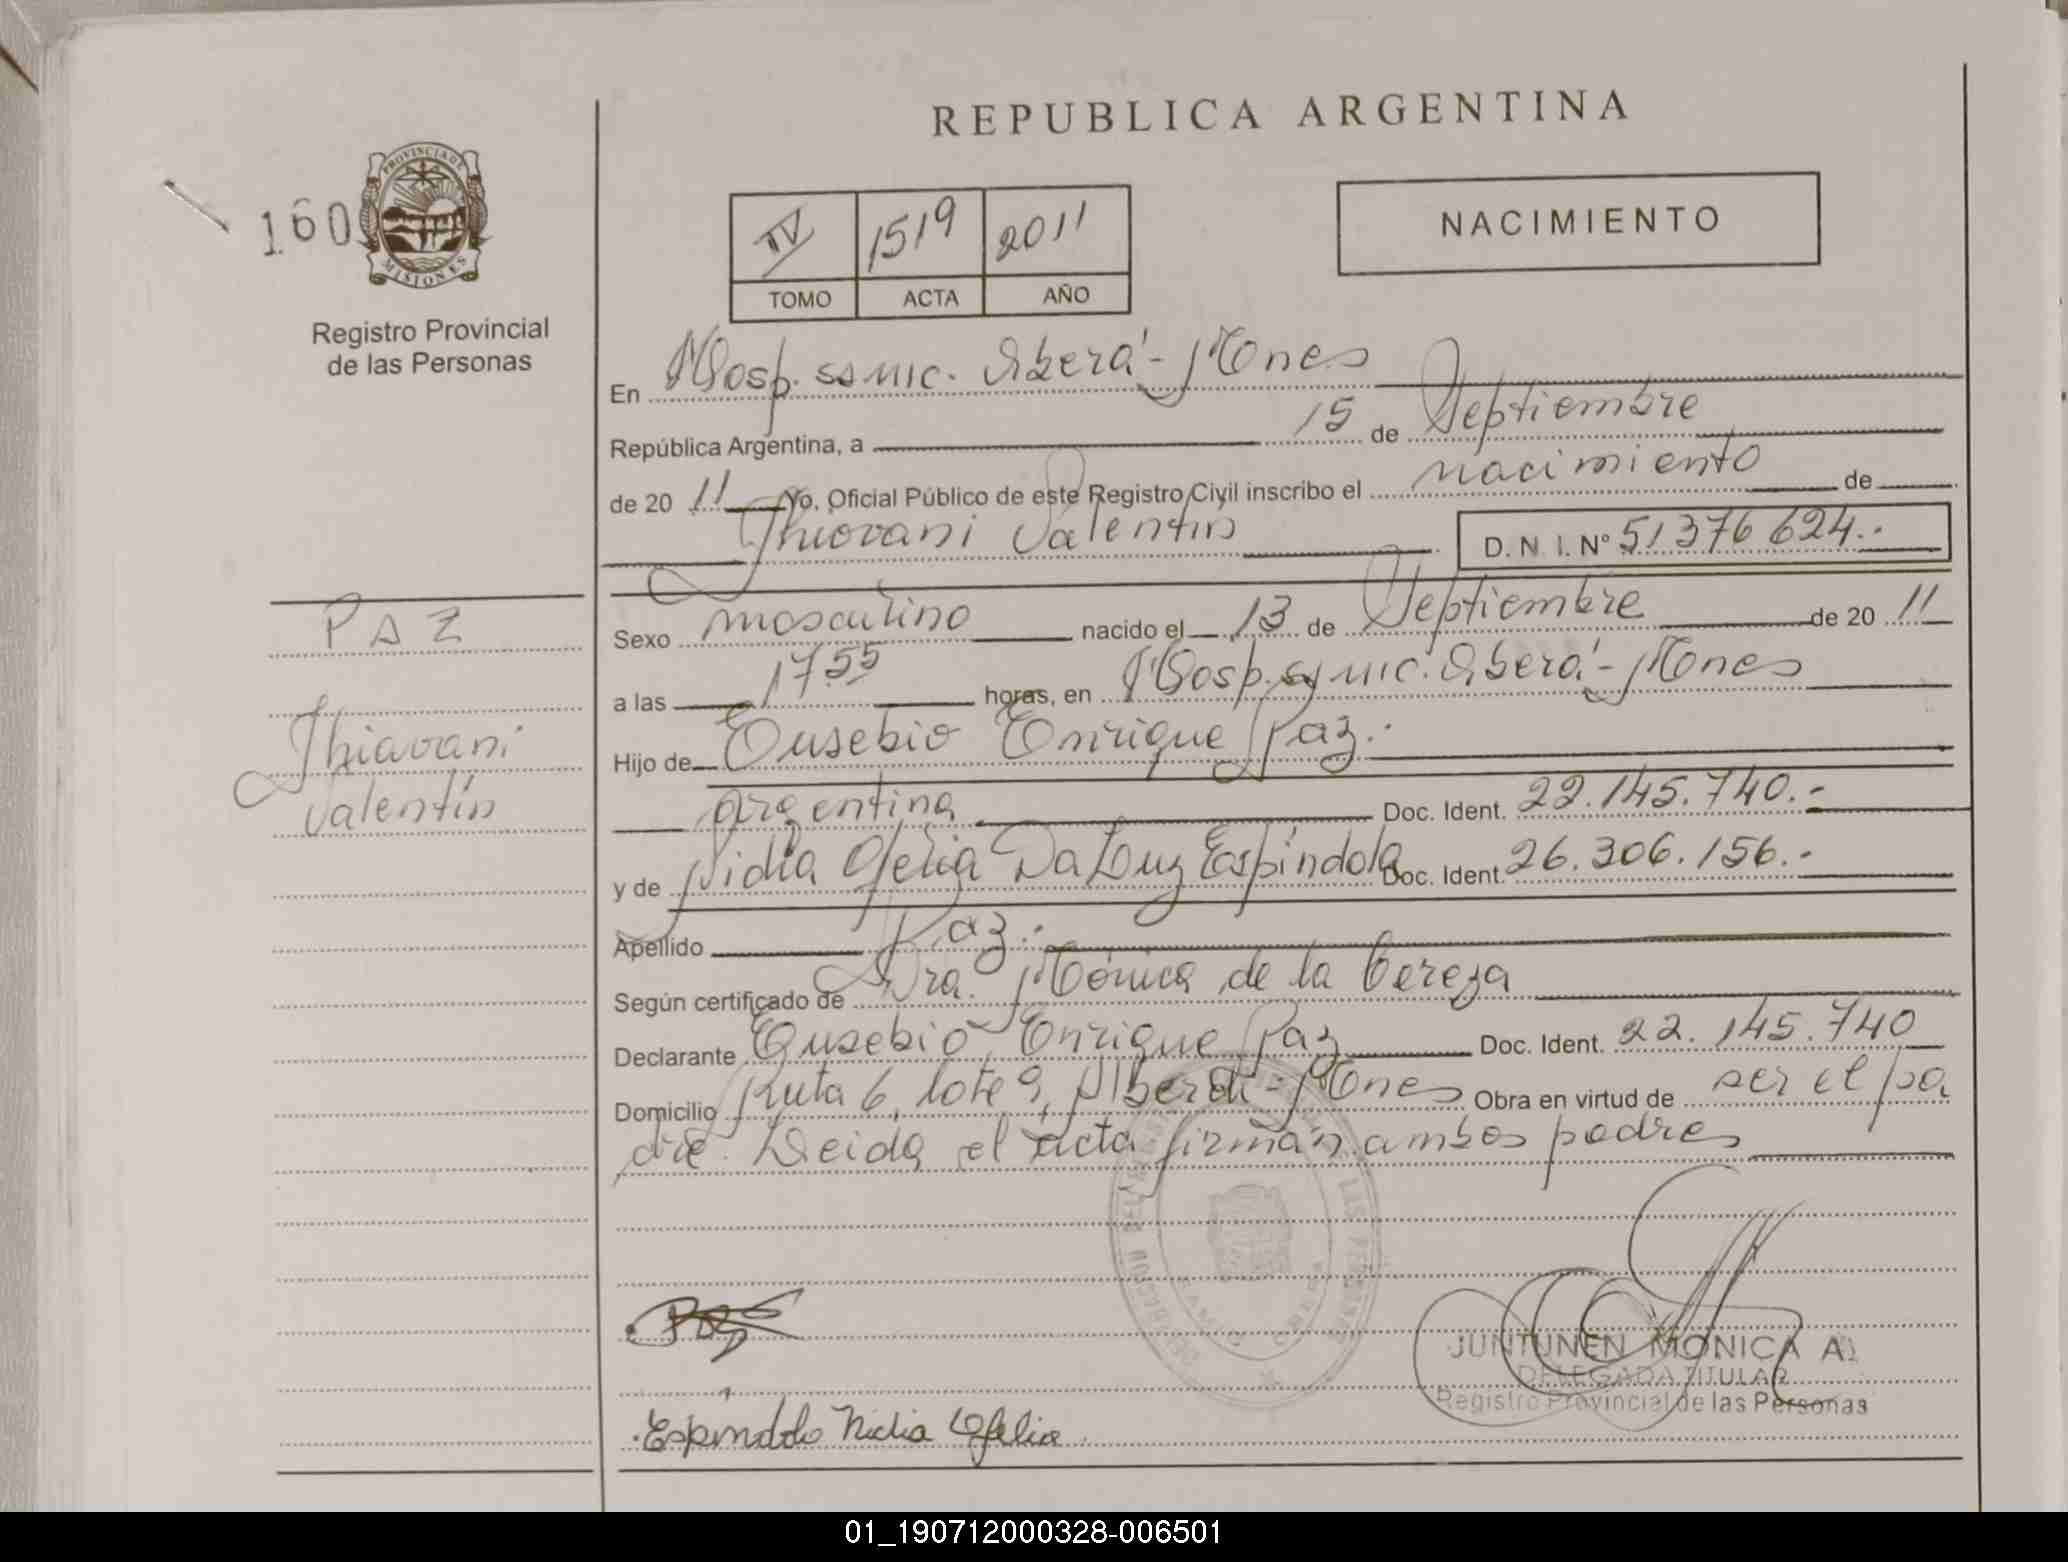 REPUBLICA ARGENTINA
160
PROVINCIA DE
MISIONES
Registro Provincial
de las Personas
IV 1519 2011
TOMO ACTA AÑO
NACIMIENTO
En Hosp. ssmic. Oberá - Mones
República Argentina, a 15 de Septiembre
de 20 11 Yo, Oficial Público de este Registro Civil inscribo el nacimiento de
Thiovani Valentín D. N. I. Nº 51376624.-
PAZ
Thiovani
Valentín
Sexo masculino nacido el 13 de Septiembre de 20 11
a las 17.55 horas, en Hosp. ssmic. Oberá - Mones
Hijo de Eusebio Enrique Paz.-
argentina Doc. Ident. 22.145.740.-
y de Nidia Ofelia Da Luz Espíndola Doc. Ident. 26.306.156.-
Apellido Paz.-
Según certificado de Dra. Mónica de la
Declarante Eusebio Enrique Paz Doc. Ident. 22.145.740
Domicilio Ruta 6, lote 9, Alberdi - Mones Obra en virtud de ser el pa
dre. Leida el acta firman ambos padres
Paz
JUNTUNEN MONICA A.
DELEGADA TITULAR
Registro Provincial de las Personas
Espindola Nidia Ofelia
01_190712000328-006501